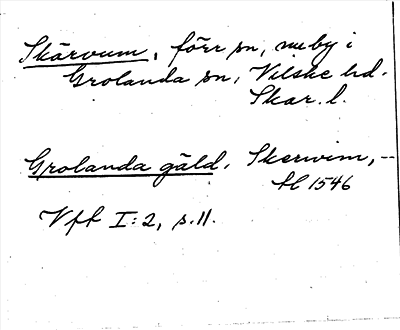 Skärvum, förr sn, nu by i
Grolanda sn, Vilske hd.
Skar. l.
Grolanda gäld. Skerwim, --
hl 1546
Vff I:2, s. 11.